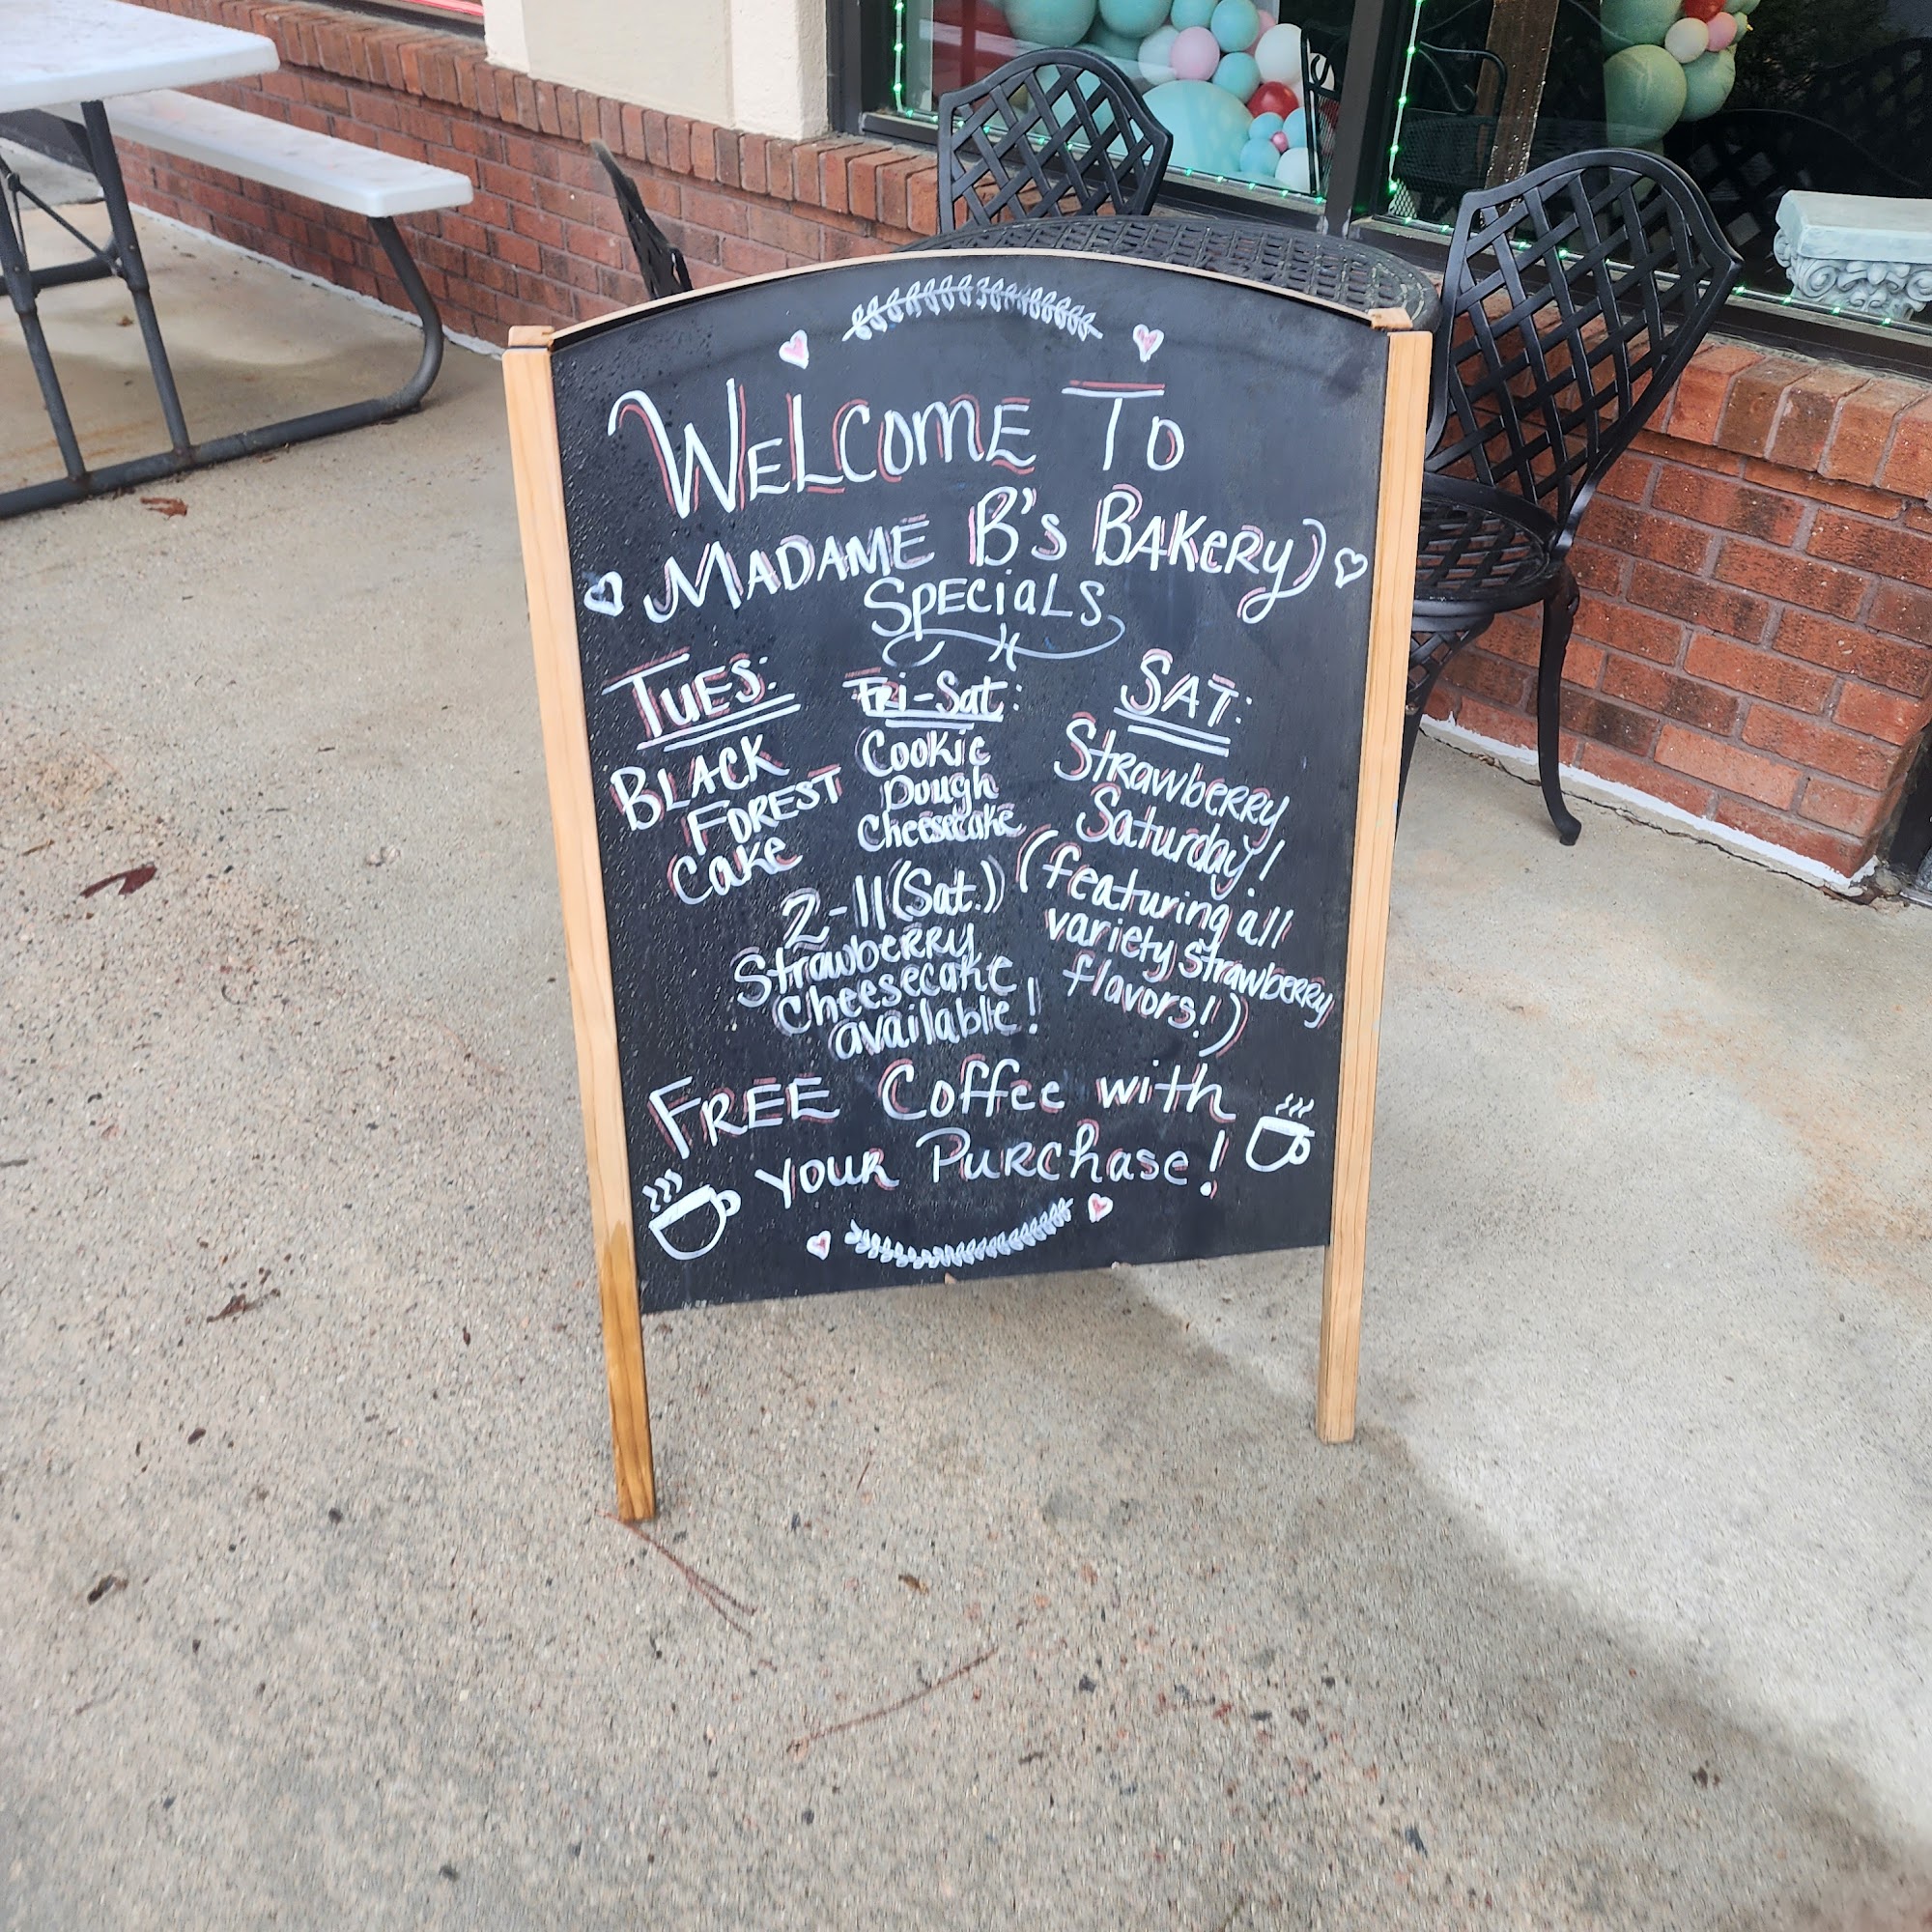 WELCOME TO
MADAME B's BAKERY
SPECIALS
TUES:
BLACK
FOREST
Cake
Fri-Sat:
Cookie
Dough
Cheesecake
2-11(Sat.)
Strawberry
Cheesecake
available!
SAT:
Strawberry
Saturday!
(featuring all
variety strawberry
flavors!)
FREE Coffee with
your Purchase!